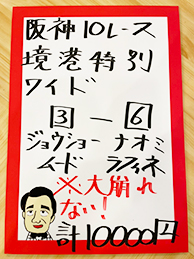 阪神10レース
境港特別
ワイド
3 — 6
ジョウショー ナオミ
ムード ラフィネ
※大崩れ
ない!
計10000円